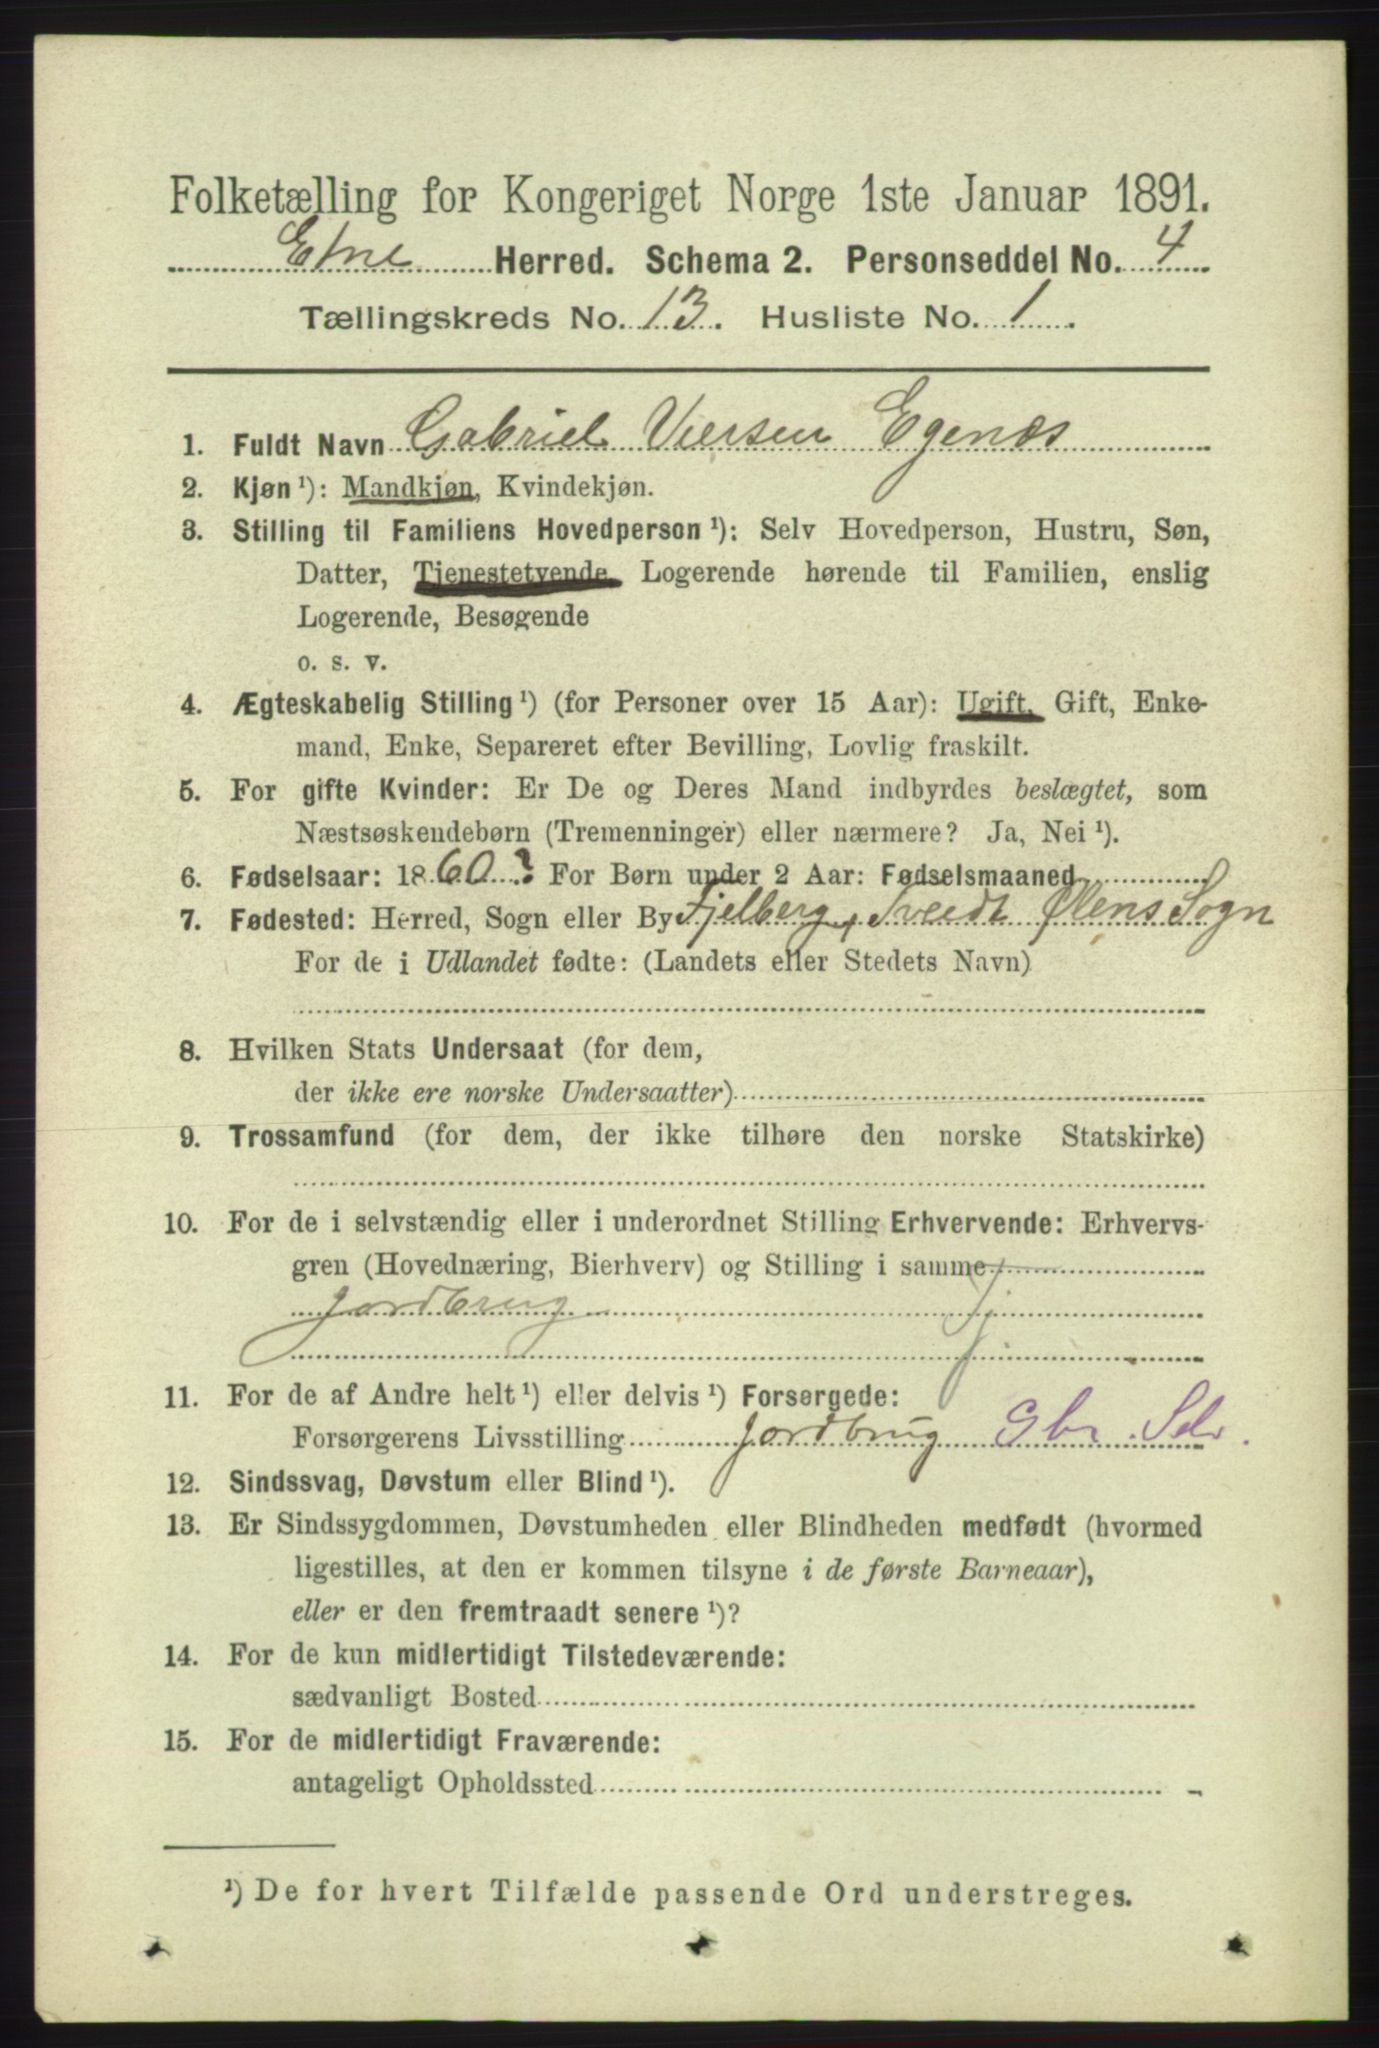 Folketælling for Kongeriget Norge 1ste Januar 1891.
Etne Herred. Schema 2. Personseddel No. 4
Tællingskreds No. 13. Husliste No. 1.
1. Fuldt Navn Gabriel Egenæs
2. Kjøn ¹): Mandkjøn, Kvindekjøn.
3. Stilling til Familiens Hovedperson ¹): Selv Hovedperson, Hustru, Søn,
Datter, Tjenestetyende, Logerende hørende til Familien, enslig
Logerende, Besøgende
o. s. v.
4. Ægteskabelig Stilling ¹) (for Personer over 15 Aar): Ugift, Gift, Enke-
mand, Enke, Separeret efter Bevilling, Lovlig fraskilt.
5. For gifte Kvinder: Er De og Deres Mand indbyrdes beslægtet, som
Næstsøskendebørn (Tremenninger) eller nærmere? Ja, Nei ¹).
6. Fødselsaar: 1860? For Børn under 2 Aar: Fødselsmaaned
7. Fødested: Herred, Sogn eller By Fjelberg, Ølens Sogn
For de i Udlandet fødte: (Landets eller Stedets Navn)
8. Hvilken Stats Undersaat (for dem,
der ikke ere norske Undersaatter)
9. Trossamfund (for dem, der ikke tilhøre den norske Statskirke)
10. For de i selvstændig eller i underordnet Stilling Erhvervende: Erhvervs-
gren (Hovednæring, Bierhverv) og Stilling i samme
Jordbrug
11. For de af Andre helt ¹) eller delvis ¹) Forsørgede:
Forsørgerens Livsstilling Jordbrug Gbr. Selv.
12. Sindssvag, Døvstum eller Blind ¹).
13. Er Sindssygdommen, Døvstumheden eller Blindheden medfødt (hvormed
ligestilles, at den er kommen tilsyne i de første Barneaar),
eller er den fremtraadt senere ¹)?
14. For de kun midlertidigt Tilstedeværende:
sædvanligt Bosted
15. For de midlertidigt Fraværende:
antageligt Opholdssted
¹) De for hvert Tilfælde passende Ord understreges.